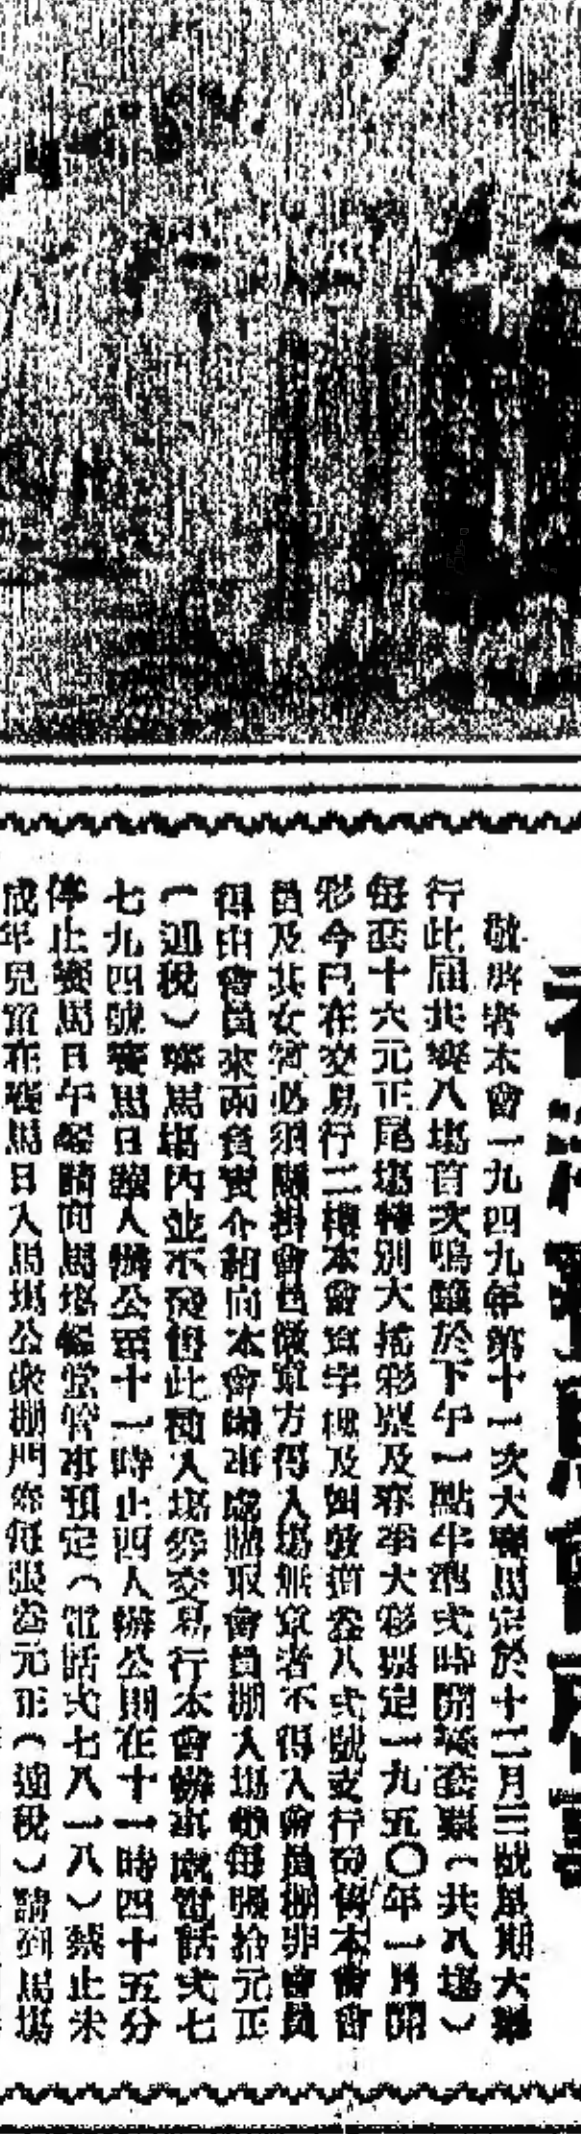 香港賽馬會啓事
敬啓者本會一九四九年第十一次大賽馬定於十二月三號星期六舉
行此屆共賽八塲首次鳴鐘於下午一點半準弍時開賽套票（共八塲）
每套十六元正尾塲特別大搖彩票及春季大彩票定一九五〇年一月開
彩今已在交易行二樓本會寫字樓及 道叁八弍號支行 本會會
員及其女賓必須 掛會色徽章方得入塲無章者不得入會員棚非會員
得由會員來函負責介紹向本會辦事處購取會員棚入塲券每張拾元正
（連稅）賽馬塲內並不發售此種入塲券交易行本會辦事處電話弍七
七九四號賽馬日 人辦公至十一時止四人辦公則在十一時四十五分
停止賽馬日午餐請向馬塲餐堂管事預定（電話弍七八一八）禁止未
成年兒童在賽馬日入馬塲公衆棚門券每張叁元正（連稅）請到馬塲